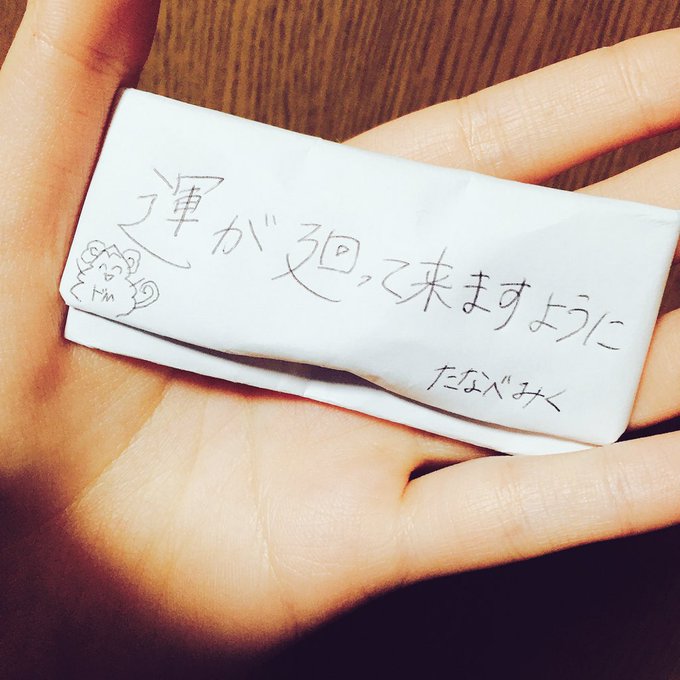 運が廻って来ますように
たなべみく